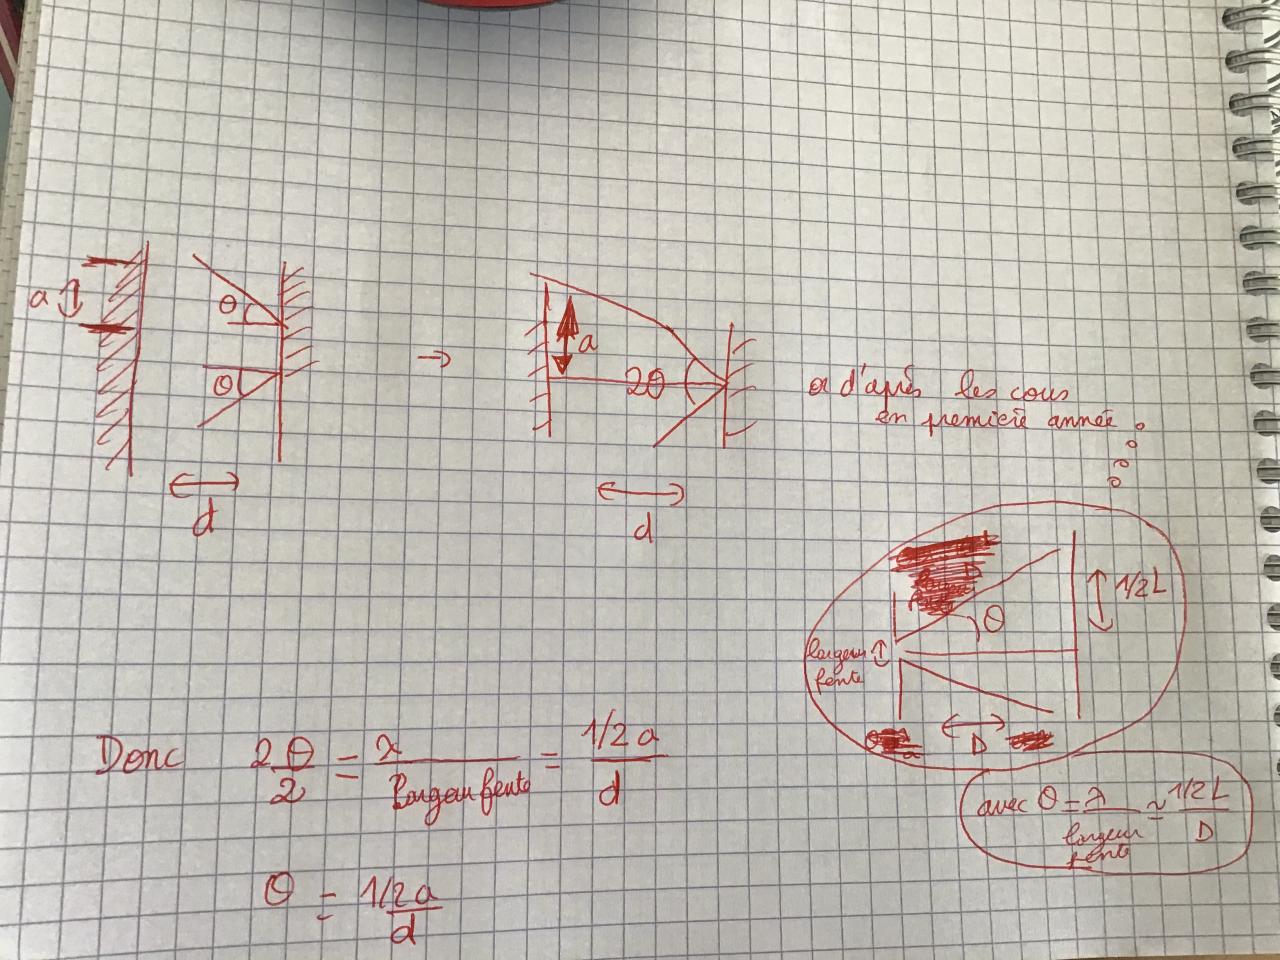 a
θ
θ
d
→
a
2θ
d
or d'après les cours
en première année
1/2 L
θ
largeur
fente
D
Donc 2θ/2 = λ/largeur fente = 1/2 a/d
avec θ = λ/largeur fente ≃ 1/2 L/D
θ = 1/2 a/d